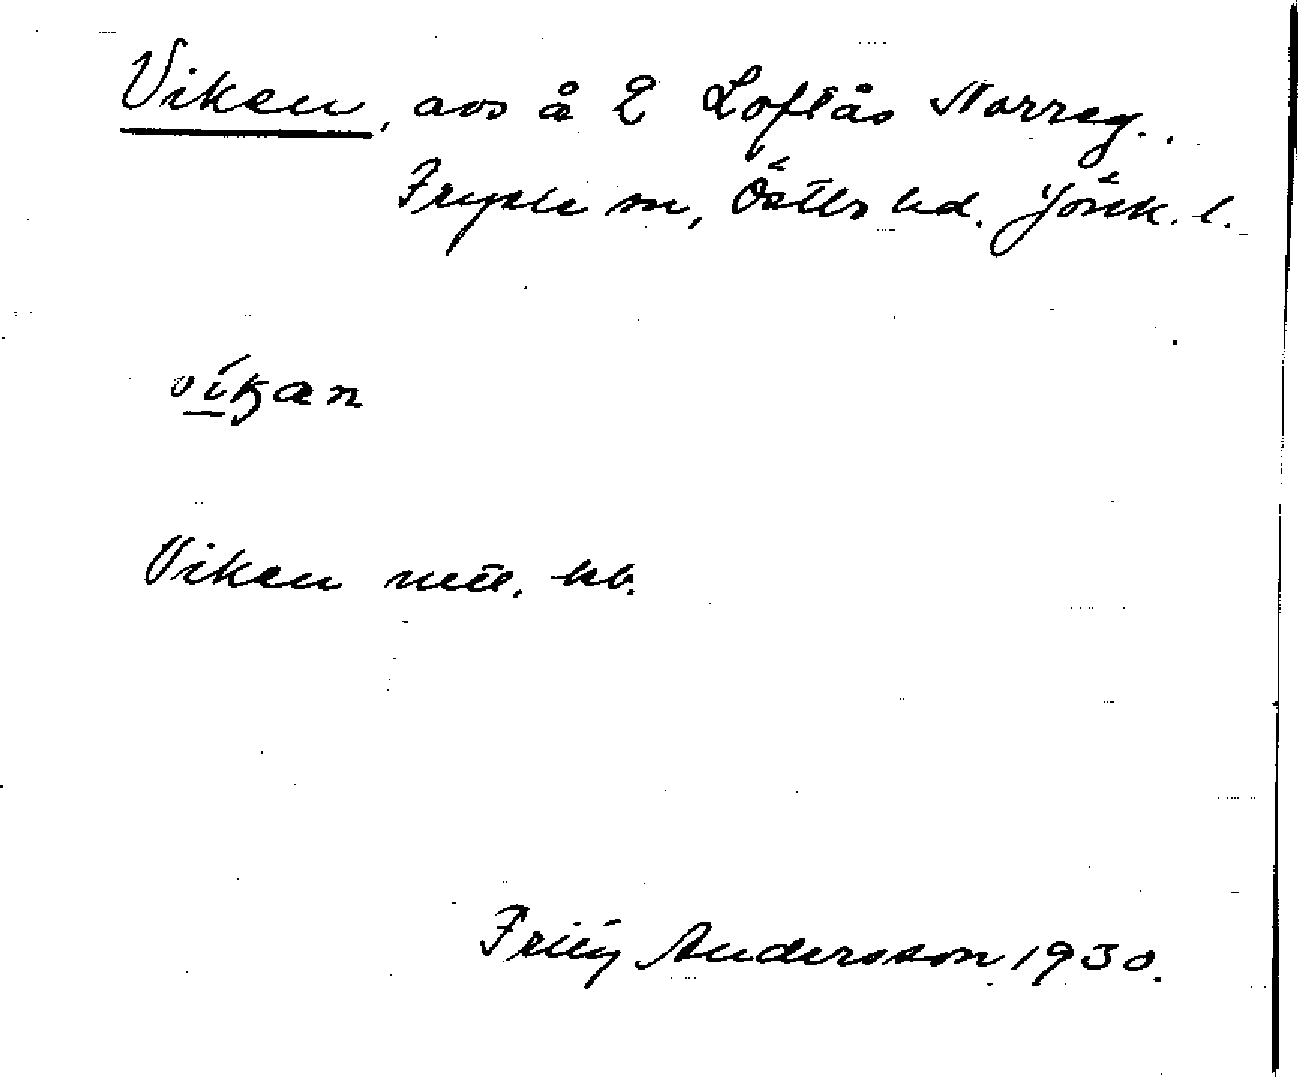 Viken, avs å 2 Loftås Norreg..
Fryele sn, Östbo hd. Jönk. l.
víkan
Viken utt. kb.
Fritz Andersson 1930.